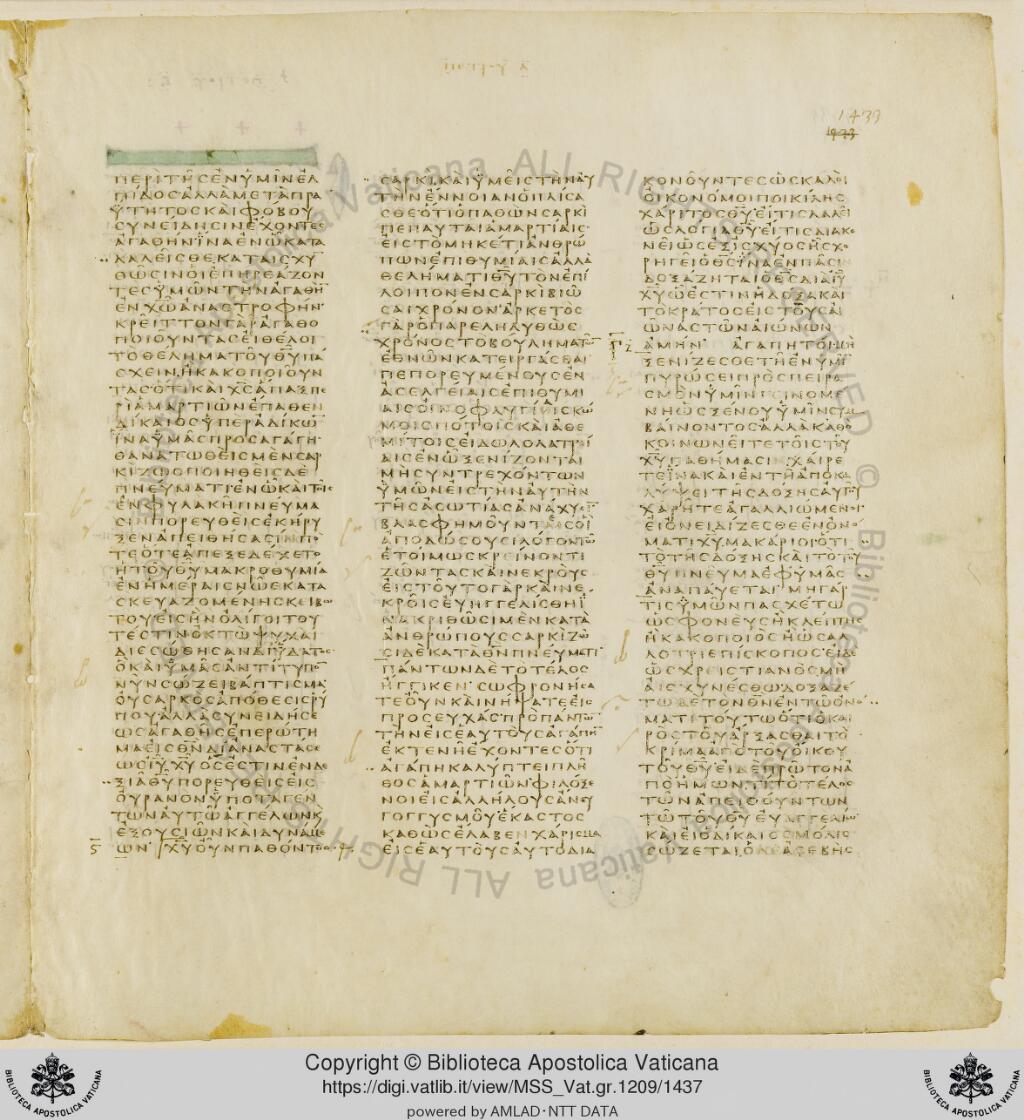 1433
1433
ΠΕΡΙΤΗϹΕΝΥΜΙΝΕΛ
ΠΙΔΟϹΑΛΛΑΜΕΤΑΠΡΑ
ΥΤΗΤΟϹΚΑΙΦΟΒΟΥ
ϹΥΝΕΙΔΗϹΙΝΕΧΟΝΤΕϹ
ΑΓΑΘΗΝΙΝΑΕΝΩΚΑΤΑ
ΛΑΛΕΙϹΘΕΚΑΤΑΙϹΧΥ
ΘΩϹΙΝΟΙΕΠΗΡΕΑΖΟΝ
ΤΕϹΥΜΩΝΤΗΝΑΓΑΘΗ
ΕΝΧΩΑΝΑϹΤΡΟΦΗΝ
ΚΡΕΙΤΤΟΝΓΑΡΑΓΑΘΟ
ΠΟΙΟΥΝΤΑϹΕΙΘΕΛΟΙ
ΤΟΘΕΛΗΜΑΤΟΥΘΥΠΑ
ϹΧΕΙΝΗΚΑΚΟΠΟΙΟΥΝ
ΤΑϹΟΤΙΚΑΙΧϹΑΠΑΞΠΕ
ΡΙΑΜΑΡΤΙΩΝΕΠΑΘΕΝ
ΔΙΚΑΙΟϹΥΠΕΡΑΔΙΚΩ
ΙΝΑΥΜΑϹΠΡΟϹΑΓΑΓΗ
ΘΑΝΑΤΩΘΕΙϹΜΕΝϹΑΡ
ΚΙΖΩΟΠΟΙΗΘΕΙϹΔΕ
ΠΝΕΥΜΑΤΙΕΝΩΚΑΙΤΟΙϹ
ΕΝΦΥΛΑΚΗΠΝΕΥΜΑ
ϹΙΝΠΟΡΕΥΘΕΙϹΕΚΗΡΥ
ΞΕΝΑΠΕΙΘΗϹΑϹΙΝΠΟ
ΤΕΟΤΕΑΠΕΞΕΔΕΧΕΤΟ
ΗΤΟΥΘΥΜΑΚΡΟΘΥΜΙΑ
ΕΝΗΜΕΡΑΙϹΝΩΕΚΑΤΑ
ϹΚΕΥΑΖΟΜΕΝΗϹΚΕΙΒΩ
ΤΟΥΕΙϹΗΝΟΛΙΓΟΙΤΟΥ
ΤΕϹΤΙΝΟΚΤΩΨΥΧΑΙ
ΔΙΕϹΩΘΗϹΑΝΔΙΥΔΑΤΟϹ
ΟΚΑΙΥΜΑϹΑΝΤΙΤΥΠΟ
ΝΥΝϹΩΖΕΙΒΑΠΤΙϹΜΑ
ΟΥϹΑΡΚΟϹΑΠΟΘΕϹΙϹΡΥ
ΠΟΥΑΛΛΑϹΥΝΕΙΔΗϹΕ
ΩϹΑΓΑΘΗϹΕΠΕΡΩΤΗ
ΜΑΕΙϹΘΝΔΙΑΝΑϹΤΑϹΕ
ΩϹΙΥΧΥΟϹΕϹΤΙΝΕΝΔΕ
ΞΙΑΘΥΠΟΡΕΥΘΕΙϹΕΙϹ
ΟΥΡΑΝΟΝΥΠΟΤΑΓΕΝ
ΤΩΝΑΥΤΩΑΓΓΕΛΩΝΚ
ΕΞΟΥϹΙΩΝΚΑΙΔΥΝΑΜΕ
ΩΝ ΧΥΟΥΝΠΑΘΟΝΤΟϹ
ϹΑΡΚΙΚΑΙΥΜΕΙϹΤΗΝΑΥ
ΤΗΝΕΝΝΟΙΑΝΟΠΛΙϹΑ
ϹΘΕΟΤΙΟΠΑΘΩΝϹΑΡΚΙ
ΠΕΠΑΥΤΑΙΑΜΑΡΤΙΑΙϹ
ΕΙϹΤΟΜΗΚΕΤΙΑΝΘΡΩ
ΠΩΝΕΠΙΘΥΜΙΑΙϹΑΛΛΑ
ΘΕΛΗΜΑΤΙΘΥΤΟΝΕΠΙ
ΛΟΙΠΟΝΕΝϹΑΡΚΙΒΙΩ
ϹΑΙΧΡΟΝΟΝΑΡΚΕΤΟϹ
ΓΑΡΟΠΑΡΕΛΗΛΥΘΩϹ
ΧΡΟΝΟϹΤΟΒΟΥΛΗΜΑΤΩ
ΕΘΝΩΝΚΑΤΕΙΡΓΑϹΘΑΙ
ΠΕΠΟΡΕΥΜΕΝΟΥϹΕΝ
ΑϹΕΛΓΕΙΑΙϹΕΠΙΘΥΜΙ
ΑΙϹΟΙΝΟΦΛΥΓΙΑΙϹΚΩ
ΜΟΙϹΠΟΤΟΙϹΚΑΙΑΘΕ
ΜΙΤΟΙϹΕΙΔΩΛΟΛΑΤΡΙ
ΑΙϹΕΝΩΞΕΝΙΖΟΝΤΑΙ
ΜΗϹΥΝΤΡΕΧΟΝΤΩΝ
ΥΜΩΝΕΙϹΤΗΝΑΥΤΗΝ
ΤΗϹΑϹΩΤΙΑϹΑΝΑΧΥϹΙ
ΒΛΑϹΦΗΜΟΥΝΤΕϹΟΙ
ΑΠΟΔΩϹΟΥϹΙΛΟΓΟΝΤΩ
ΕΤΟΙΜΩϹΚΡΕΙΝΟΝΤΙ
ΖΩΝΤΑϹΚΑΙΝΕΚΡΟΥϹ
ΕΙϹΤΟΥΤΟΓΑΡΚΑΙΝΕ
ΚΡΟΙϹΕΥΗΓΓΕΛΙϹΘΗΙ
ΝΑΚΡΙΘΩϹΙΜΕΝΚΑΤΑ
ΑΝΘΡΩΠΟΥϹϹΑΡΚΙΖΩ
ϹΙΔΕΚΑΤΑΘΝΠΝΕΥΜΑΤΙ
ΠΑΝΤΩΝΔΕΤΟΤΕΛΟϹ
ΗΓΓΙΚΕΝϹΩΦΡΟΝΗϹΑ
ΤΕΟΥΝΚΑΙΝΗΨΑΤΕΕΙϹ
ΠΡΟϹΕΥΧΑϹΠΡΟΠΑΝΤΩ
ΤΗΝΕΙϹΕΑΥΤΟΥϹΑΓΑΠΗ
ΕΚΤΕΝΗΕΧΟΝΤΕϹΟΤΙ
ΑΓΑΠΗΚΑΛΥΠΤΕΙΠΛΗ
ΘΟϹΑΜΑΡΤΙΩΝΦΙΛΟΞΕ
ΝΟΙΕΙϹΑΛΛΗΛΟΥϹΑΝΕΥ
ΓΟΓΓΥϹΜΟΥΕΚΑϹΤΟϹ
ΚΑΘΩϹΕΛΑΒΕΝΧΑΡΙϹΜΑ
ΕΙϹΕΑΥΤΟΥϹΑΥΤΟΔΙΑ
ΚΟΝΟΥΝΤΕϹΩϹΚΑΛΟΙ
ΟΙΚΟΝΟΜΟΙΠΟΙΚΙΛΗϹ
ΧΑΡΙΤΟϹΘΥΕΙΤΙϹΛΑΛΕΙ
ΩϹΛΟΓΙΑΘΥΕΙΤΙϹΔΙΑΚΟ
ΝΕΙΩϹΕΞΙϹΧΥΟϹΗϹΧΟ
ΡΗΓΕΙΟΘϹΙΝΑΕΝΠΑϹΙ
ΔΟΞΑΖΗΤΑΙΟΘϹΔΙΑΙΥ
ΧΥΩΕϹΤΙΝΗΔΟΞΑΚΑΙ
ΤΟΚΡΑΤΟϹΕΙϹΤΟΥϹΑΙ
ΩΝΑϹΤΩΝΑΙΩΝΩΝ
ΑΜΗΝ ΑΓΑΠΗΤΟΙΜΗ
ΞΕΝΙΖΕϹΘΕΤΗΕΝΥΜΙ
ΠΥΡΩϹΕΙΠΡΟϹΠΕΙΡΑ
ϹΜΟΝΥΜΙΝΓΕΙΝΟΜΕ
ΝΗΩϹΞΕΝΟΥΥΜΙΝϹΥΜ
ΒΑΙΝΟΝΤΟϹΑΛΛΑΚΑΘΟ
ΚΟΙΝΩΝΕΙΤΕΤΟΙϹΤΟΥ
ΧΥΠΑΘΗΜΑϹΙΝΧΑΙΡΕ
ΤΕΙΝΑΚΑΙΕΝΤΗΑΠΟΚΑ
ΛΥΨΕΙΤΗϹΔΟΞΗϹΑΥΤΟΥ
ΧΑΡΗΤΕΑΓΑΛΛΙΩΜΕΝΟΙ
ΕΙΟΝΕΙΔΙΖΕϹΘΕΕΝΟΝΟ
ΜΑΤΙΧΥΜΑΚΑΡΙΟΙΟΤΙ
ΤΟΤΗϹΔΟΞΗϹΚΑΙΤΟΤΟΥ
ΘΥΠΝΕΥΜΑΕΦΥΜΑϹ
ΑΝΑΠΑΥΕΤΑΙΜΗΓΑΡ
ΤΙϹΥΜΩΝΠΑϹΧΕΤΩ
ΩϹΦΟΝΕΥϹΗΚΛΕΠΤΗϹ
ΗΚΑΚΟΠΟΙΟϹΗΩϹΑΛ
ΛΟΤΡΙΕΠΙϹΚΟΠΟϹΕΙΔΕ
ΩϹΧΡΕΙϹΤΙΑΝΟϹΜΗ
ΑΙϹΧΥΝΕϹΘΩΔΟΞΑΖΕ
ΤΩΔΕΤΟΝΘΝΕΝΤΩΟΝΟ
ΜΑΤΙΤΟΥΤΩΟΤΙΟΚΑΙ
ΡΟϹΤΟΥΑΡΞΑϹΘΑΙΤΟ
ΚΡΙΜΑΑΠΟΤΟΥΟΙΚΟΥ
ΤΟΥΘΥΕΙΔΕΠΡΩΤΟΝΑ
ΠΟΗΜΩΝΤΙΤΟΤΕΛΟϹ
ΤΩΝΑΠΕΙΘΟΥΝΤΩΝ
ΤΩΤΟΥΘΥΕΥΑΓΓΕΛΙΩ
ΚΑΙΕΙΟΔΙΚΑΙΟϹΜΟΛΙϹ
ϹΩΖΕΤΑΙΟΔΕΑϹΕΒΗϹ
Copyright © Biblioteca Apostolica Vaticana
https://digi.vatlib.it/view/MSS_Vat.gr.1209/1437
powered by AMLAD·NTT DATA
BIBLIOTECA APOSTOLICA VATICANA
BIBLIOTECA APOSTOLICA VATICANA